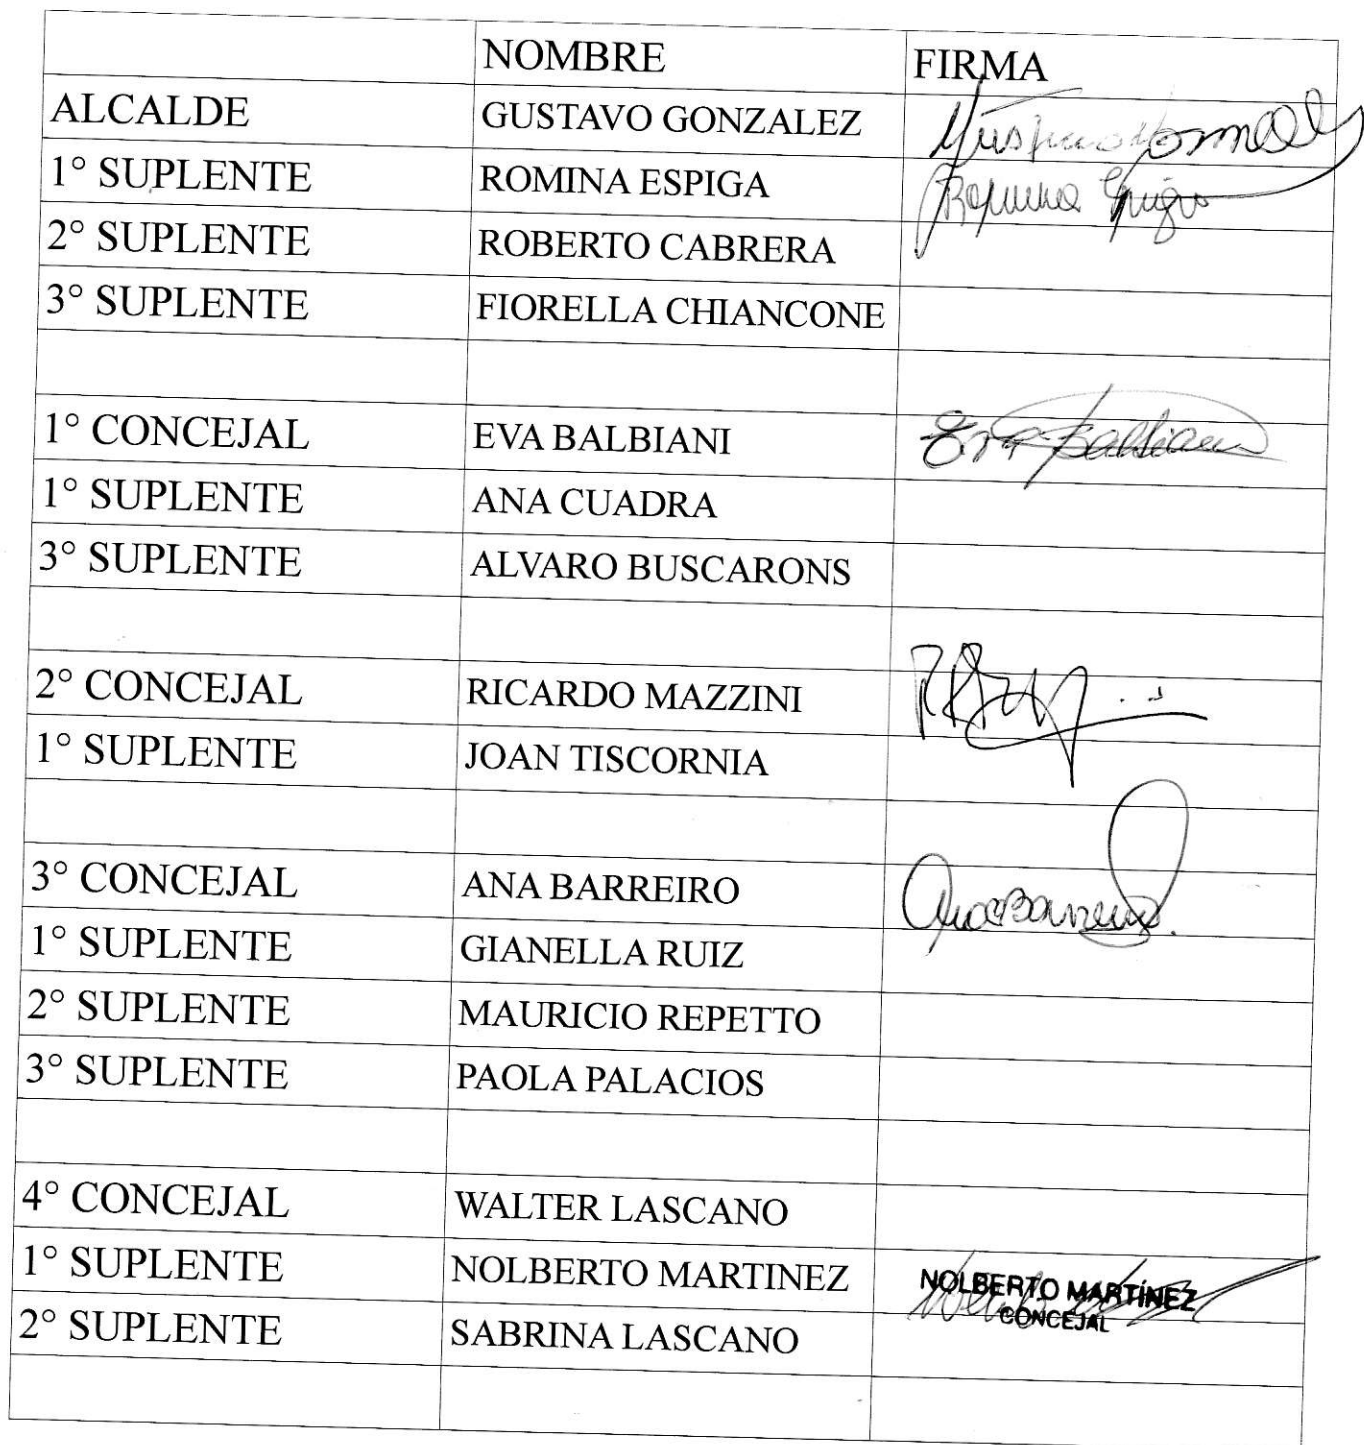 NOMBRE FIRMA
ALCALDE GUSTAVO GONZALEZ
1° SUPLENTE ROMINA ESPIGA
2° SUPLENTE ROBERTO CABRERA
3° SUPLENTE FIORELLA CHIANCONE
1° CONCEJAL EVA BALBIANI Eva Balbiani
1° SUPLENTE ANA CUADRA
3° SUPLENTE ALVARO BUSCARONS
2° CONCEJAL RICARDO MAZZINI
1° SUPLENTE JOAN TISCORNIA
3° CONCEJAL ANA BARREIRO Ana Barreiro
1° SUPLENTE GIANELLA RUIZ
2° SUPLENTE MAURICIO REPETTO
3° SUPLENTE PAOLA PALACIOS
4° CONCEJAL WALTER LASCANO
1° SUPLENTE NOLBERTO MARTINEZ NOLBERTO MARTÍNEZ
CONCEJAL
2° SUPLENTE SABRINA LASCANO